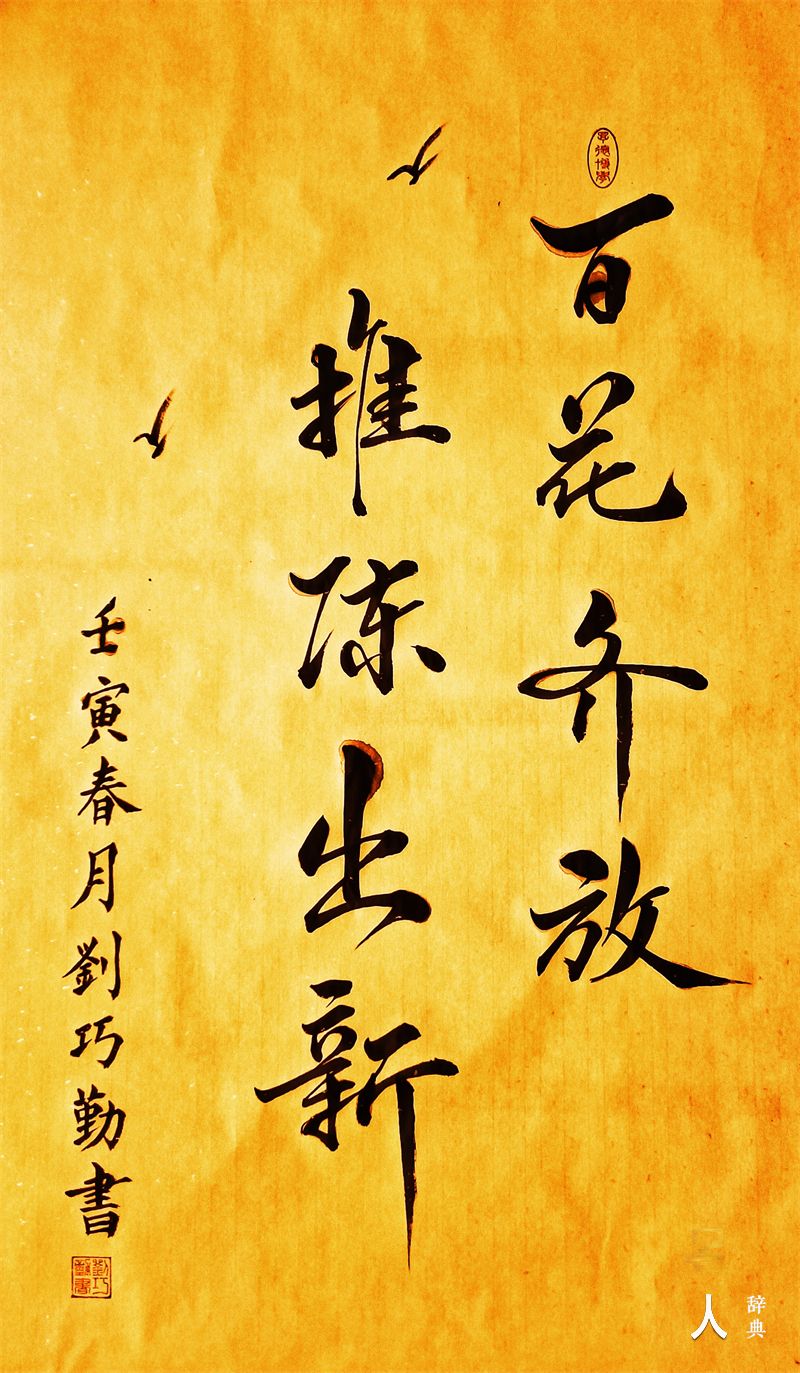 百花齐放
推陈出新
壬寅春月劉巧勤書
人
辞典